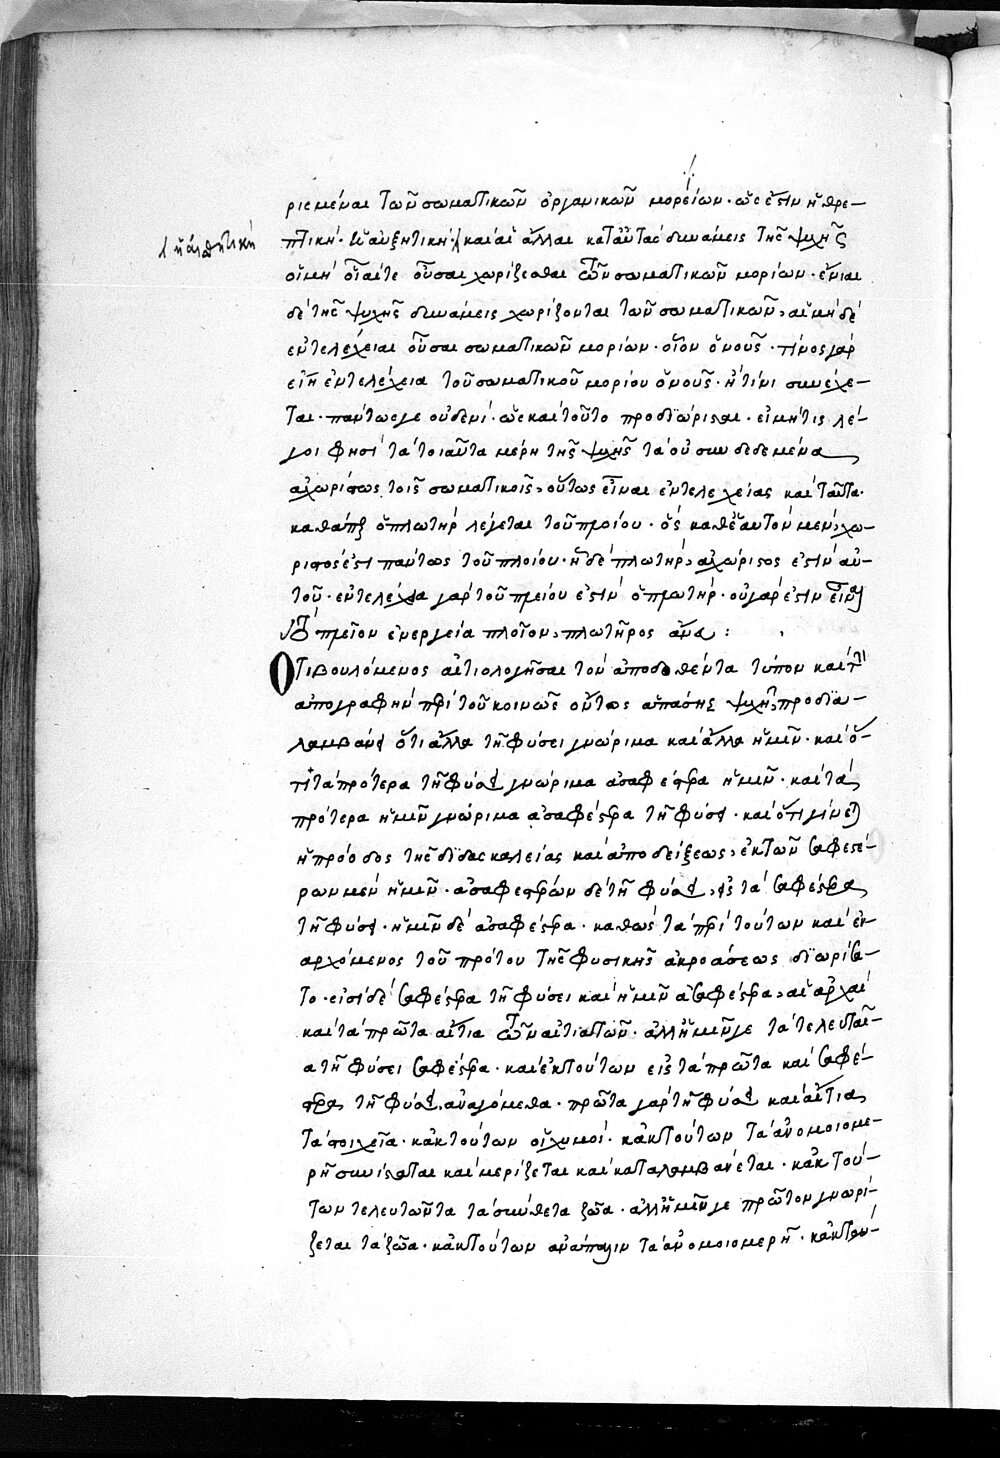 ριεμέναι τῶν σωματικῶν ὀργανικῶν μορείων· ὥς ἐστιν ἡ θρε-
πτικὴ· ἡ αὐξητικὴ· καὶ αἱ ἄλλαι κατ αὐτὰς δυνάμεις τῆς ψυχῆς
ἡ αἰσθητικὴ
οἱ μὴ οἷαί τε οὖσαι χωρίζεσθαι τῶν σωματικῶν μορίων· ἔνιαι
δὲ τῆς ψυχῆς δυνάμεις χωρίζονται τῶν σωματικῶν, αἱ μὴ δὲ
ἐντελέχειαι οὖσαι σωματικῶν μορίων· οἷον ὁ νοῦς· τίνος γὰρ
εἴη ἐντελέχεια τοῦ σωματικοῦ μορίου ὁ νοῦς· ἢ τίνι συνέχε-
ται· πάντως γε οὐδενί· ὡς καὶ τοῦτο προσδιώρισται· εἰ μή τις λέ-
γοι φησὶ τὰ τοιαῦτα μέρη τῆς ψυχῆς τὰ οὐ συνδεδεμένα
ἀχωρίστως τοῖς σωματικοῖς, οὕτως εἶναι ἐντελεχείας καὶ ταῦτα·
καθάπερ ὁ πλωτὴρ λέγεται τοῦ πλοίου· ὃς καθ ἑαυτὸν μὲν, χω-
ριστός ἐστι πάντως τοῦ πλοίου· ᾗ δὲ πλωτὴρ, ἀχώριστος ἐστὶν αὐ-
τοῦ· ἐντελέχεια γὰρ τοῦ πλοίου ἐστὶν ὁ πλωτήρ· οὐ γάρ ἐστιν εἶναι
τὸ πλοῖον ἐνεργεία πλοῖον, πλωτῆρος ἄνευ :
Ὅτι βουλόμενος αἰτιολογῆσαι τὸν ἀποδοθέντα τύπον καὶ τὴν
ἀπογραφὴν περὶ τοῦ κοινῶς οὕτως ἁπάσης ψυχῆς, προσδια-
λαμβάνει ὅτι ἄλλα τῇ φύσει γνώριμα καὶ ἄλλα ἡμῖν· καὶ ὅ-
τι τὰ πρότερα τῇ φύσει γνώριμα ἀσαφέστερα ἡμῖν· καὶ τὰ
πρότερα ἡμῖν γνώριμα ἀσαφέστερα τῇ φύσει· καὶ ὅτι γίνεται
ἡ πρόοδος τῆς διδασκαλείας καὶ ἀποδείξεως, ἐκ τῶν σαφεστέ-
ρων μὲν ἡμῖν· ἀσαφεστέρων δὲ τῇ φύσει, εἰς τὰ σαφέστερα
τῇ φύσει· ἡμῖν δὲ ἀσαφέστερα· καθὼς τὰ περὶ τούτων καὶ ἐν
αρχόμενος τοῦ πρότου τῆς φυσικῆς ἀκροάσεως διωρίσα-
το· εἰσὶ δὲ σαφέστερα τῇ φύσει καὶ ἡμῖν ἀσαφέστερα, αἱ ἀρχαὶ
καὶ τὰ πρῶτα αἴτια τῶν αἰτιατῶν· ἀλλ ἡμῖν γε τὰ τελευταῖ-
α τῇ φύσει σαφέστερα· καὶ ἐκ τούτων εἰς τὰ πρῶτα καὶ σαφέ-
στερα τῇ φύσει ἀναγόμεθα· πρῶτα γὰρ τῇ φύσει καὶ αἴτια
τὰ στοιχεῖα· κἀκ τούτων οἱ χυμοί· κἀκ τούτων τὰ ἀνομοιομε-
ρῆ συνίσταται καὶ μερίζεται καὶ καταλαμβάνεται· κἀκ τού-
των τελευτῶντα τὰ σύνθετα ζῶα· ἀλλ ἡμῖν γε πρῶτον γνωρί-
ζεται τὰ ζῶα· κἀκ τούτων ἀνάπαλιν τὰ ἀνομοιομερῆ· κἀκ τού-